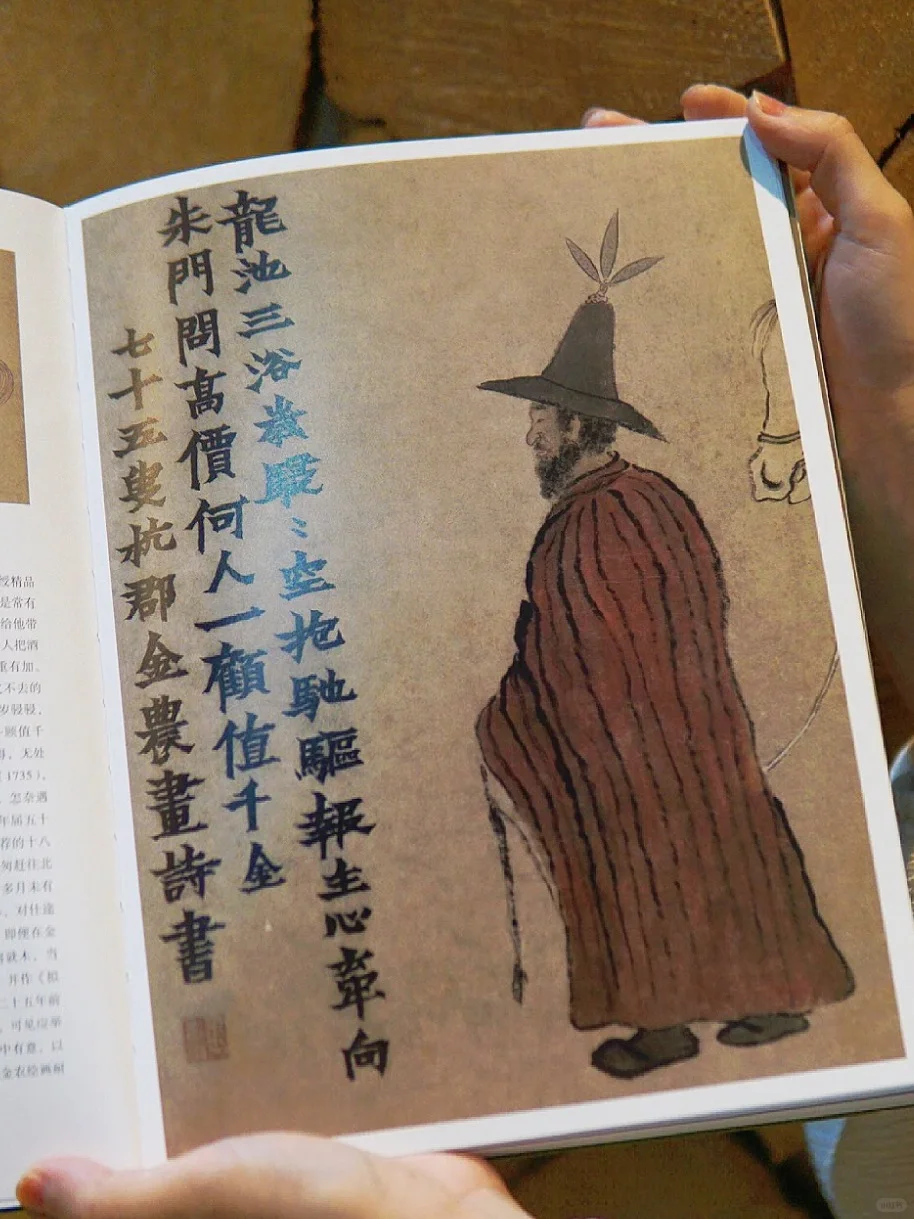 授精品
是常有
给他带
人把酒
重有加。
不去的
岁骎骎,
一顾值千
无处
1735),
怎奈遇
年届五十
荐的十八
匆赶往北
多月未有
对仕途
即便在金
就木,当
并作《拟
二十五年前
可见应举
中有意,以
金农绘画
龍池三浴歲駸〻空抱馳驅報主心牽向
朱門問高價何人一顧值千金
七十五叟杭郡金農畫詩書